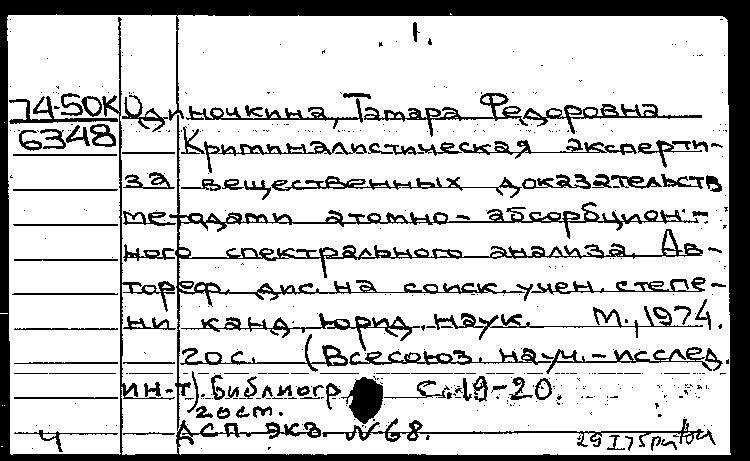 1.
74-50К Одиночкина, Тамара Федоровна
6348 Криминалистическая эксперти-
за вещественных доказательств
методами атомно-абсорбцион-
ного спектрального анализа. Ав-
тореф. дис. на соиск. учен. степе-
ни канд. юрид. наук. М., 1974.
20 с. (Всесоюз. науч.-исслед.
ин-т). Библиогр. с. 19-20.
ДСП. экз. №68.
4 29 I 75